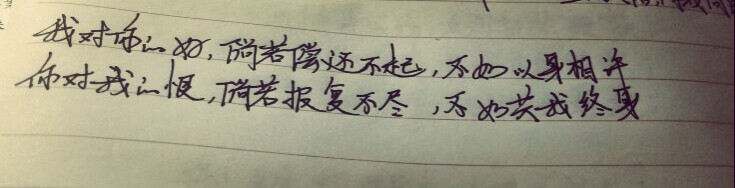 我对你的好,倘若偿还不起,不如以身相许
你对我的恨,倘若报复不尽,不如共我终身